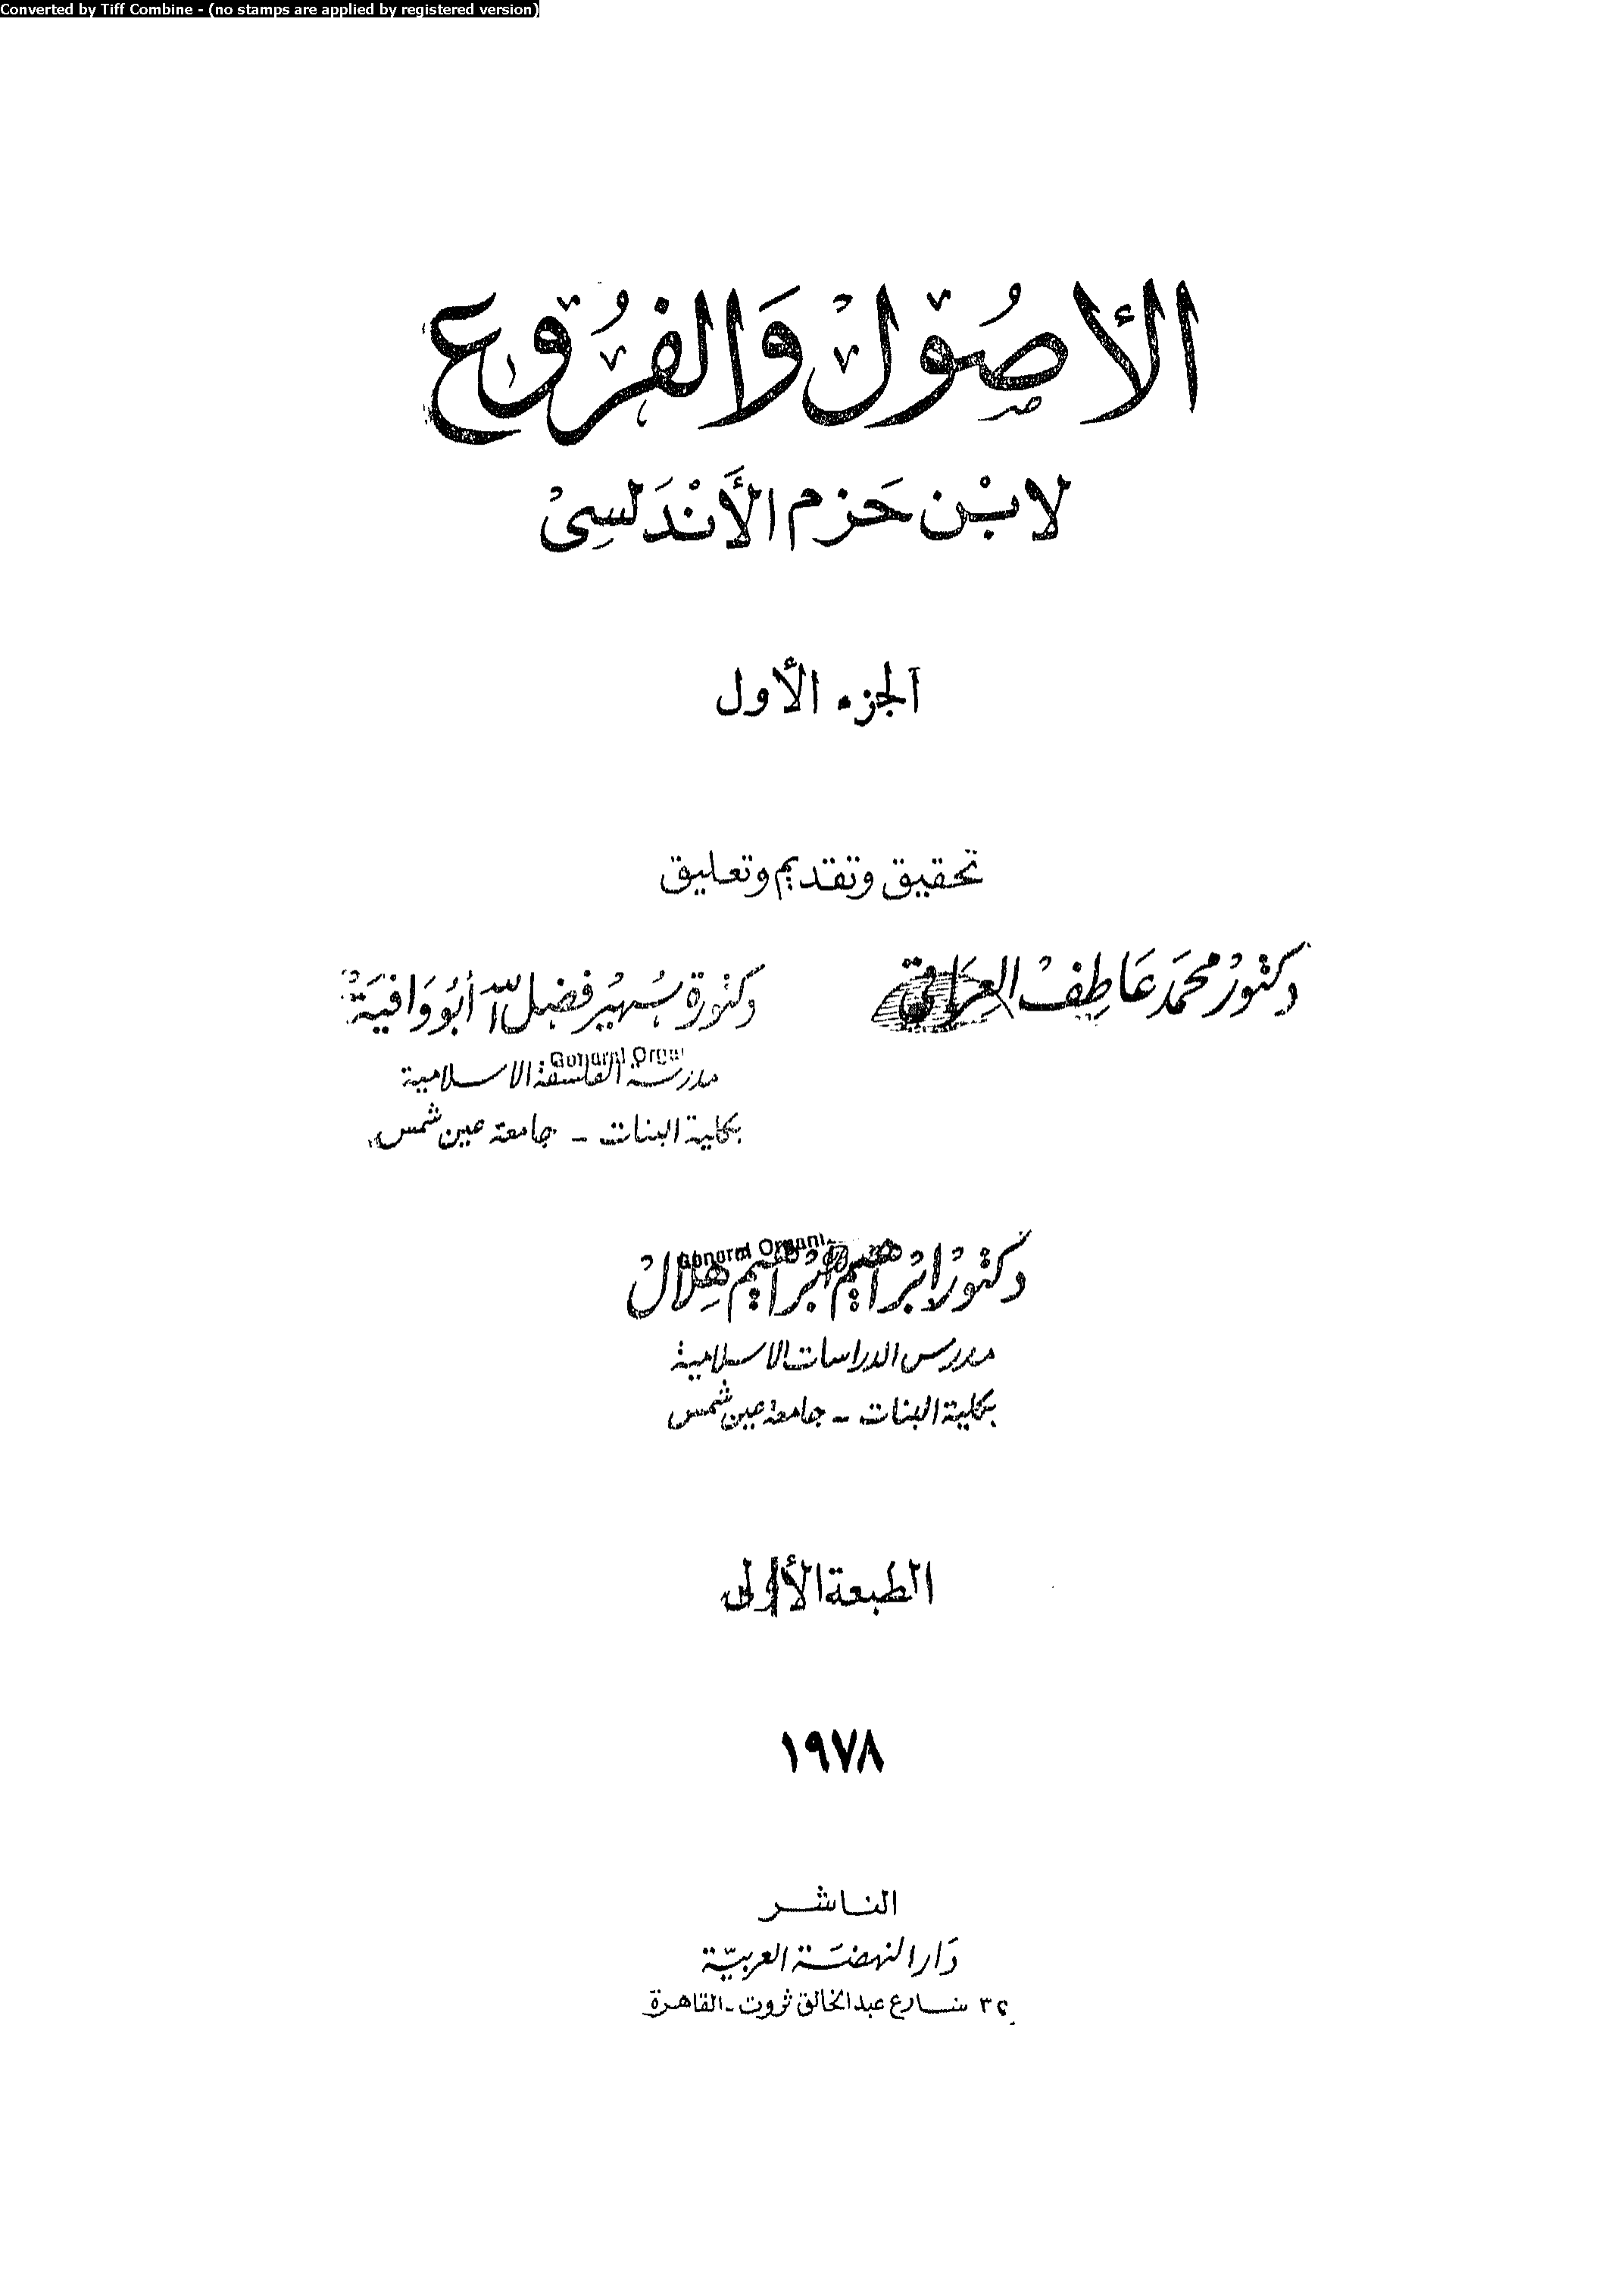 Converted by Tiff Combine - (no stamps are applied by registered version)
الأصُول وَالفرُوع
لابْن حَزم الأَنْدَلسِىْ
الجزء الأول
تحقيق وتقديم وتعليق
دكتورْ محمَد عَاطِفْ العِرَاقى
دكتورة سُهيْر فضْل اللّه أبُو وَافيَة
General Orga
مدرسة الفلسفة الاسلامية
بكلية البنات - جامعة عين شمس
General Organi
دكتورْ إبْراهيم إبْراهيم هِلالْ
مدرس الدراسات الاسلامية
بكلية البنات - جامعة عين شمس
الطبعة الأولى
١٩٧٨
الناشر
دَار النهضَة العربيّة
٣٢ شارع عبد الخالق ثروت - القاهرة